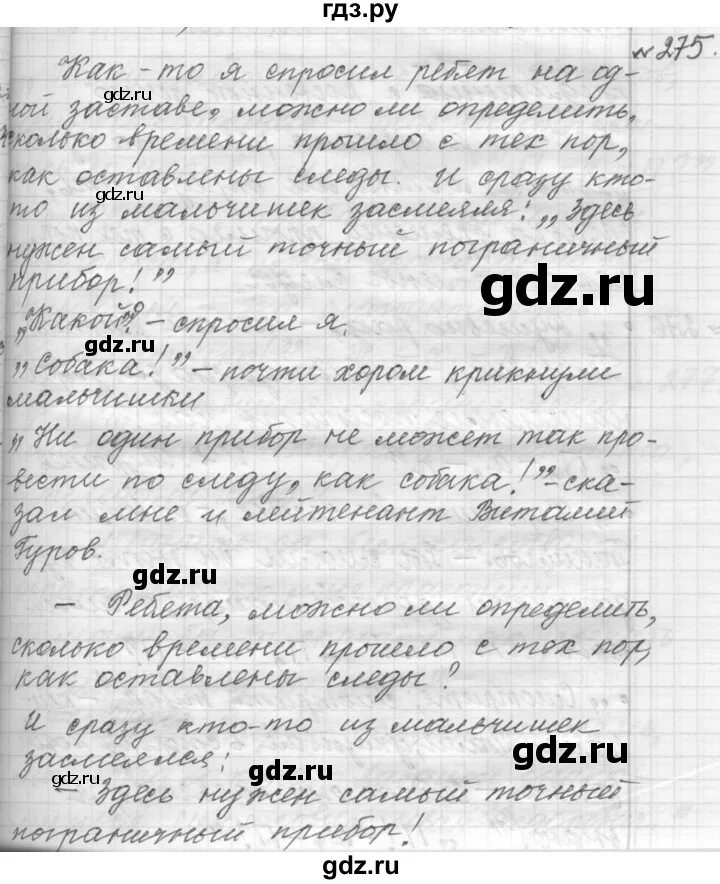 гдз.ру
№ 275.
Как-то я спросил ребят на од-
ной заставе, можно ли определить,
сколько времени прошло с тех пор,
как оставлены следы. И сразу кто-
gdz.ru
то из мальчишек засмеяля: „Здесь
нужен самый точный пограничный
прибор!”
gdz.ru
„Какой? – спросил я.
gdz.ru
„Собака!” – почти хором крикнули
мальчишки
„Ни один прибор не может так про-
вести по следу, как собака!” – ска-
gdz.ru
зал мне и лейтенант Виталий
Гуров.
gdz.ru
– Ребета, можно ли определить,
сколько времени прошло с тех пор,
как оставлены следы?
gdz.ru
И сразу кто-то из мальчишек
засмеялся:
gdz.ru
gdz.ru
gdz.ru
– Здесь нужен самый точный
пограничный прибор!
gdz.ru
gdz.ru